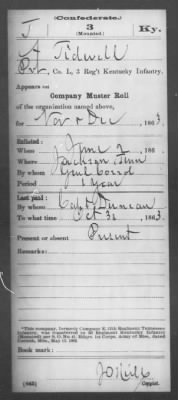 (Confederate.)
J 3 Ky.
(Mounted)
A Tidwell
Pvt, Co. I., 3 Reg't Kentucky Infantry.
Appears on
Company Muster Roll
of the organization named above,
for Nov & Dec, 1863.
Enlisted:
When June 2, 186 .
Where Jackson Tenn
By whom Genl Carrol
Period 1 Year
Last paid:
By whom Capt Duncan
To what time Oct 31, 1863.
Present or absent Present
Remarks:
*This company, formerly Company E, 12th Regiment Tennessee
Infantry, was transferred to 3d Regiment Kentucky Infantry
(Mounted) per S. O. No.
Corinth, Miss., May
Book mark:
(642) Copyist.